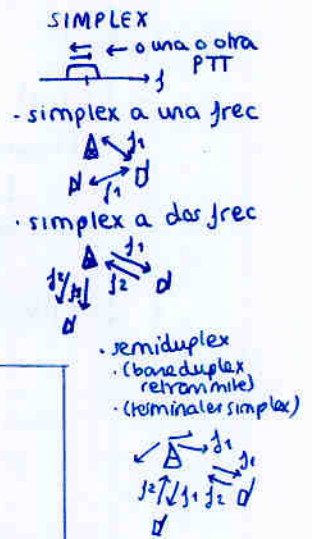 SIMPLEX
← o una o otra
PTT
f
- simplex a una frec
f1
f1
· simplex a dos frec
f1
f2 f1 f2
· semiduplex
· (base duplex
retransmite)
· (terminales simplex)
f1
f1
f2 f1 f2